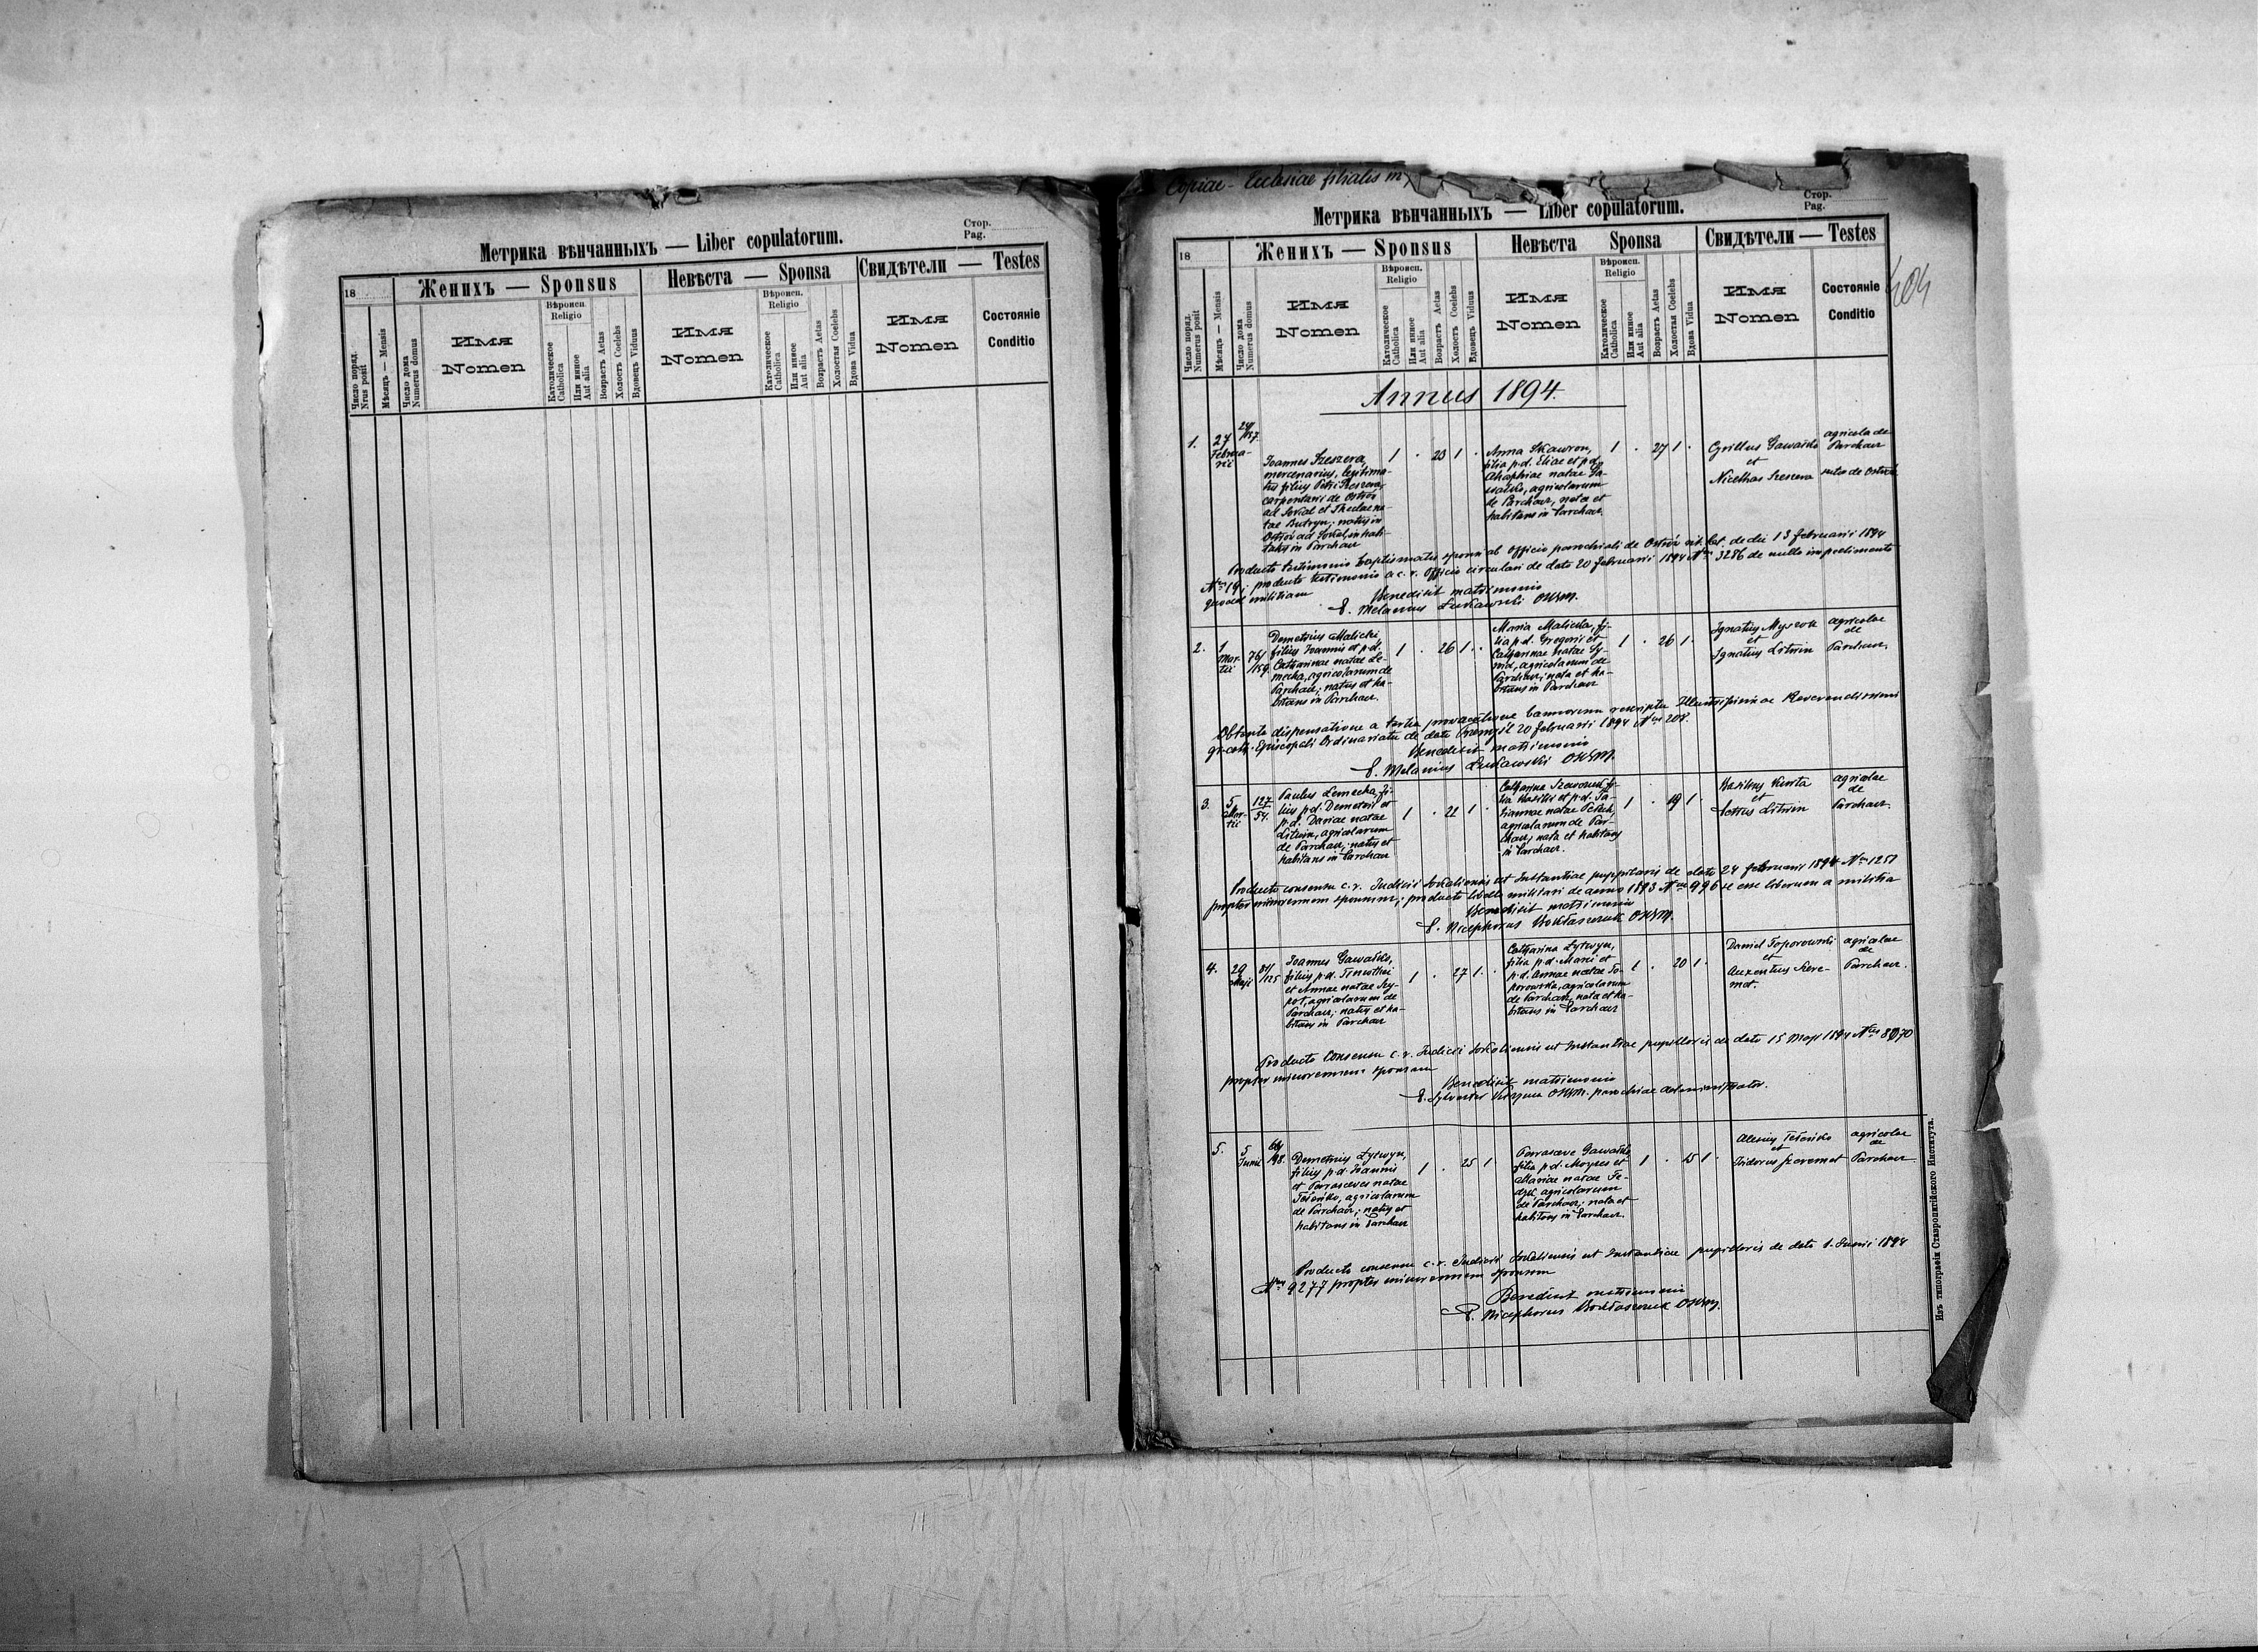 Стор.
Pag.
Метрика вѣнчанныхъ — Liber copulatorum.
18
Женихъ — Sponsus
Невѣста — Sponsa
Свидѣтели — Testes
Число поряд.
Nrus posit
Мѣсяцъ — Mensis
Число дома
Numerus domus
Имя
Nomen
Вѣроисп.
Religio
Католическое
Catholica
Или иное
Aut alia
Возрастъ Aetas
Холостъ Coelebs
Вдовецъ Viduus
Имя
Nomen
Вѣроисп.
Religio
Католическое
Catholica
Или иное
Aut alia
Возрастъ Aetas
Холостая Coelebs
Вдова Vidua
Имя
Nomen
Состояніе
Conditio
Copiae - Ecclesiae filialis in
Стор.
Pag.
Метрика вѣнчанныхъ — Liber copulatorum.
18
Женихъ — Sponsus
Невѣста Sponsa
Свидѣтели — Testes
Число поряд.
Numerus posit
Мѣсяцъ — Mensis
Число дома
Numerus domus
Имя
Nomen
Вѣроисп.
Religio
Католическое
Catholica
Или иное
Aut alia
Возрастъ Aetas
Холостъ Coelebs
Вдовецъ Viduus
Имя
Nomen
Вѣроисп.
Religio
Католическое
Catholica
Или иное
Aut alia
Возрастъ Aetas
Холостая Coelebs
Вдова Vidua
Имя
Nomen
Состояніе
Conditio
Annus 1894.
1.
27
Februa-
rii
Joannes Szeszera,
mercenarius, legitima-
tus filius Petri Szeszera,
carpentarii de Ostrów
ad Sokal et Theclae na-
tae Butryn; natus in
Ostrów ad Sokal, inhabi-
tans in Parchacz
1 . 23 1 .
Anna Skawron,
filia p.d. Eliae et p.d.
Ahaphiae natae Ga-
wałko, agricolarum
de Parchacz, nata et
habitans in Parchacz.
1 . 27 1 .
Cyrillus Gawałko
et
Nicethas Szeszera
agricola de
Parchacz
sutor de Ostrów
Producto testimonio baptismatis sponsi ab officio parochiali de Ostrów rit. lat. de die 13 februarii 1894
Nro 19; producto testimonio a c. r. officio circulari de dato 20 februarii 1894 Nro 3286 de nullo impedimento
quoad militiam
Benedixit matrimonio
P. Melanius Łukawski OSBM.
2.
1
Mar-
tii
76/
159
Demetrius Malicki
filius Joannis et p.d.
Catharinae natae Le-
mecha, agricolarum de
Parchacz; natus et ha-
bitans in Parchacz.
1 . 26 1 .
Maria Malicka, fi-
lia p.d. Gregorii et
Catharinae natae Sy-
rnik, agricolarum de
Parchacz, nata et ha-
bitans in Parchacz
1 . 26 1 .
et
Ignatius Litwin
agricolae
de
Parchacz.
Obtenta dispensatione a tertia promulgatione bannorum rescripto Illustrissimi ac Reverendissimi
gr. cath. Episcopali Ordinariatu de dato Przemyśl 20 februarii 1894 Nro 208.
Benedixit matrimonio
P. Melanius Łukawski OSBM.
3.
5
Mar-
tii
127
54.
Paulus Lemecha, fi-
lius p.d. Demetrii et
p.d. Dariae natae
Litwin, agricolarum
de Parchacz; natus et
habitans in Parchacz
1 . 22 1 .
lia Basilii et p.d. Ta-
tiannae natae
agricolarum de Par-
chacz, nata et habitans
in Parchacz.
1 . 19 1 .
Basilius
et
Petrus Litwin
agricolae
de
Parchacz.
Producto consensu c. r. Judicii Sokaliensis ut Instantiae pupillaris de dato 24 februarii 1894 Nro 1251
propter minorennem sponsam; producto libello militari de anno 1893 Nro 996 se esse liberum a militia
Benedixit matrimonio
P. Nicephorus OSBM.
4.
29
Maji
81/
125
Joannes Gawałko,
filius p.d. Timothei
et Annae natae Szy-
pot, agricolarum de
Parchacz; natus et ha-
bitans in Parchacz
1 . 27 1 .
Catharina Łytwyn,
filia p.d. Marci et
p.d. Annae natae To-
porowska, agricolarum
de Parchacz, nata et ha-
bitans in Parchacz
1 . 20 1 .
Daniel Toporowski
et
Auxentius Szere-
met.
agricolae
de
Parchacz.
Producto Consensu c. r. Judicii Sokaliensis ut Instantiae pupillaris de dato 15 Maji 1894 Nro 8170
propter minorennem sponsam
Benedixit matrimonio
P. Sylvester OSBM. parochiae administrator.
5.
5
Junii
Demetrius Łytwyn,
filius p.d. Joannis
et Parasceves natae
agricolarum
de Parchacz; natus et
habitans in Parchacz
1 . 25 1
Parasceve Gawałko
filia p.d. Moyses et
Mariae natae Fe-
agricolarum
de Parchacz; nata et
habitans in Parchacz.
1 . 15 1 .
Alexius
et
Isidorus Szeremet
agricolae
de
Parchacz
Producto consensu c. r. Judicii Sokaliensis ut Instantiae pupillaris de dato 1. Junii 1894
Nro 9277 propter minorennem sponsam
Benedixit matrimonio
P. Nicephorus OSBM.
Изъ типографіи Ставропигійского Института.